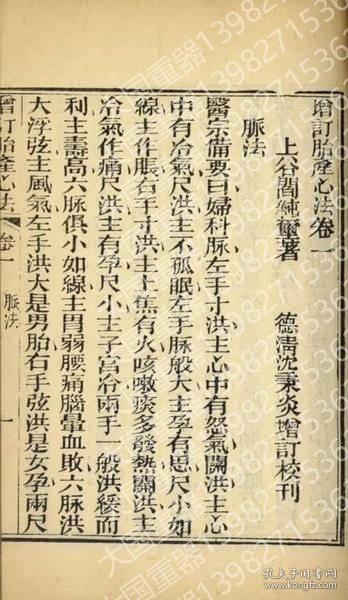 增訂胎產心法卷一
上谷閻純璽著　德清沈秉炎增訂校刊
脈法
醫宗備要曰婦科脈左手寸洪主心中有怒氣關洪主心
中有冷氣尺洪主不孤眠左手脈般大主孕有思尺小如
線主作脹右手寸洪主上焦有火咳嗽痰多發熱關洪主
冷氣作痛尺洪主有孕尺小主子宮冷兩手一般洪緩而
利主壽高六脈俱小如線主胃弱腰痛腦暈血敗六脈洪
大浮弦主風氣左手洪大是男胎右手弦洪是女孕兩尺
增訂胎產心法
卷一
脈法
一
大国重器13982715362
孔夫子旧书网